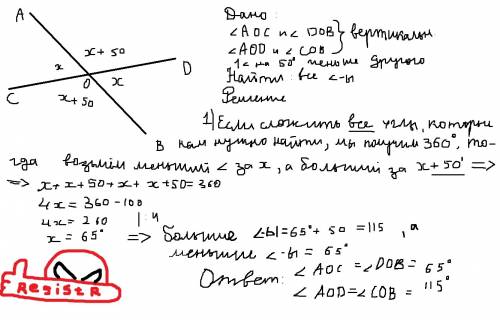 A
x + 50
x
O
x
D
C
x + 50
B
Дано:
∠AOC и ∠DOB } вертикальн
∠AOD и ∠COB
1 ∠ на 50° меньше другого
Найти: все ∠-ы
Решение
1) Если сложить все углы, которые
нам нужно найти, мы получим 360°, то-
гда возьмём меньший ∠ за x, а больший за x+50° =>
=> x + x + 50 + x + x + 50 = 360
4x = 360 - 100
4x = 260 | : 4
x = 65° => большие ∠-ы = 65° + 50 = 115, а
меньшие ∠-ы = 65°
Ответ: ∠AOC = ∠DOB = 65°
∠AOD = ∠COB = 115°
RESISTR